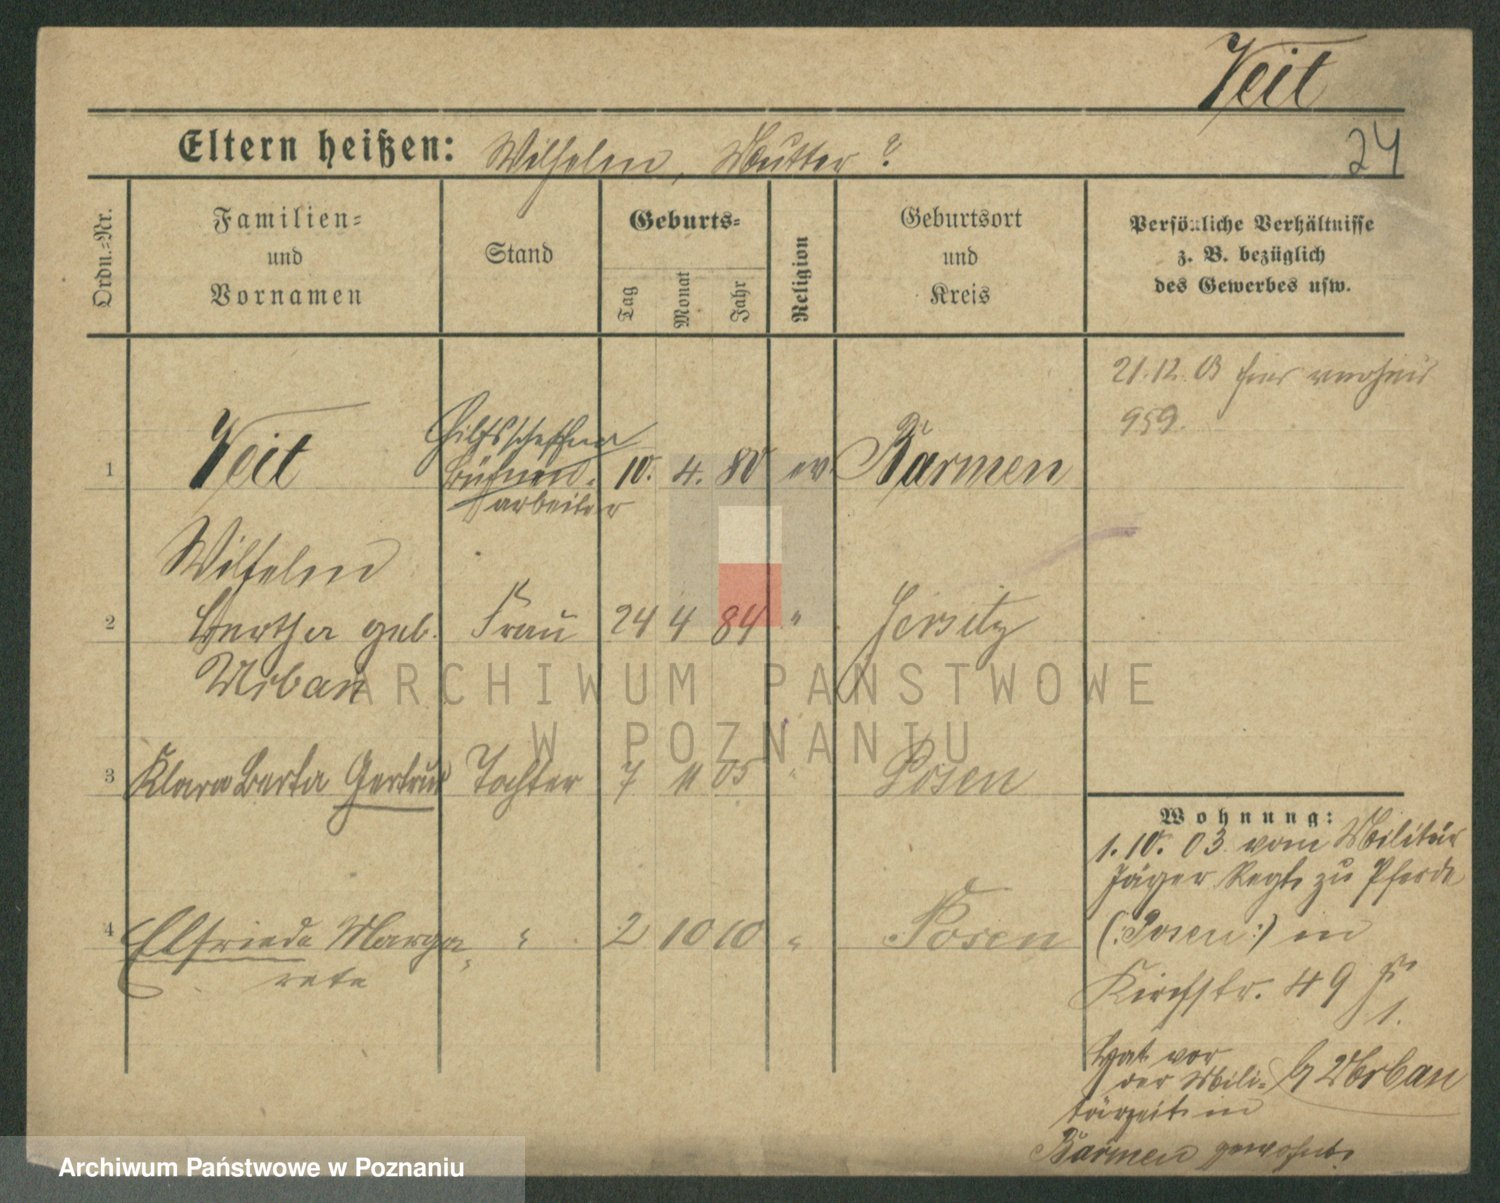 Veit
24
Eltern heißen: Wilhelm, Mutter ?
Ordn.-Nr.
Familien-
und
Vornamen
Stand
Geburts-
Tag
Monat
Jahr
Religion
Geburtsort
und
Kreis
Persönliche Verhältnisse
z. B. bezüglich
des Gewerbes usw.
21.12.03 hier verheir
959.
Hilfsschaffner
1 Veit Bühnen- 10. 4. 80 ev. Barmen
arbeiter
Wilhelm
2 Bertha geb. Frau 24 4 84 " Jersitz
Urban
3 Klara Berta Gertrud Tochter 7 11 05 " Posen
4 Elfriede Marga- " 2 10 10 " Posen
rete
Wohnung:
1.10.03 vom Militär
Jäger Regt. zu Pferde
(:Posen:) in
Kirchstr. 49
1.
b/ Urban
Hat vor
der Mili-
tärzeit in
Barmen gewohnt.
ARCHIWUM PAŃSTWOWE
W POZNANIU
Archiwum Państwowe w Poznaniu